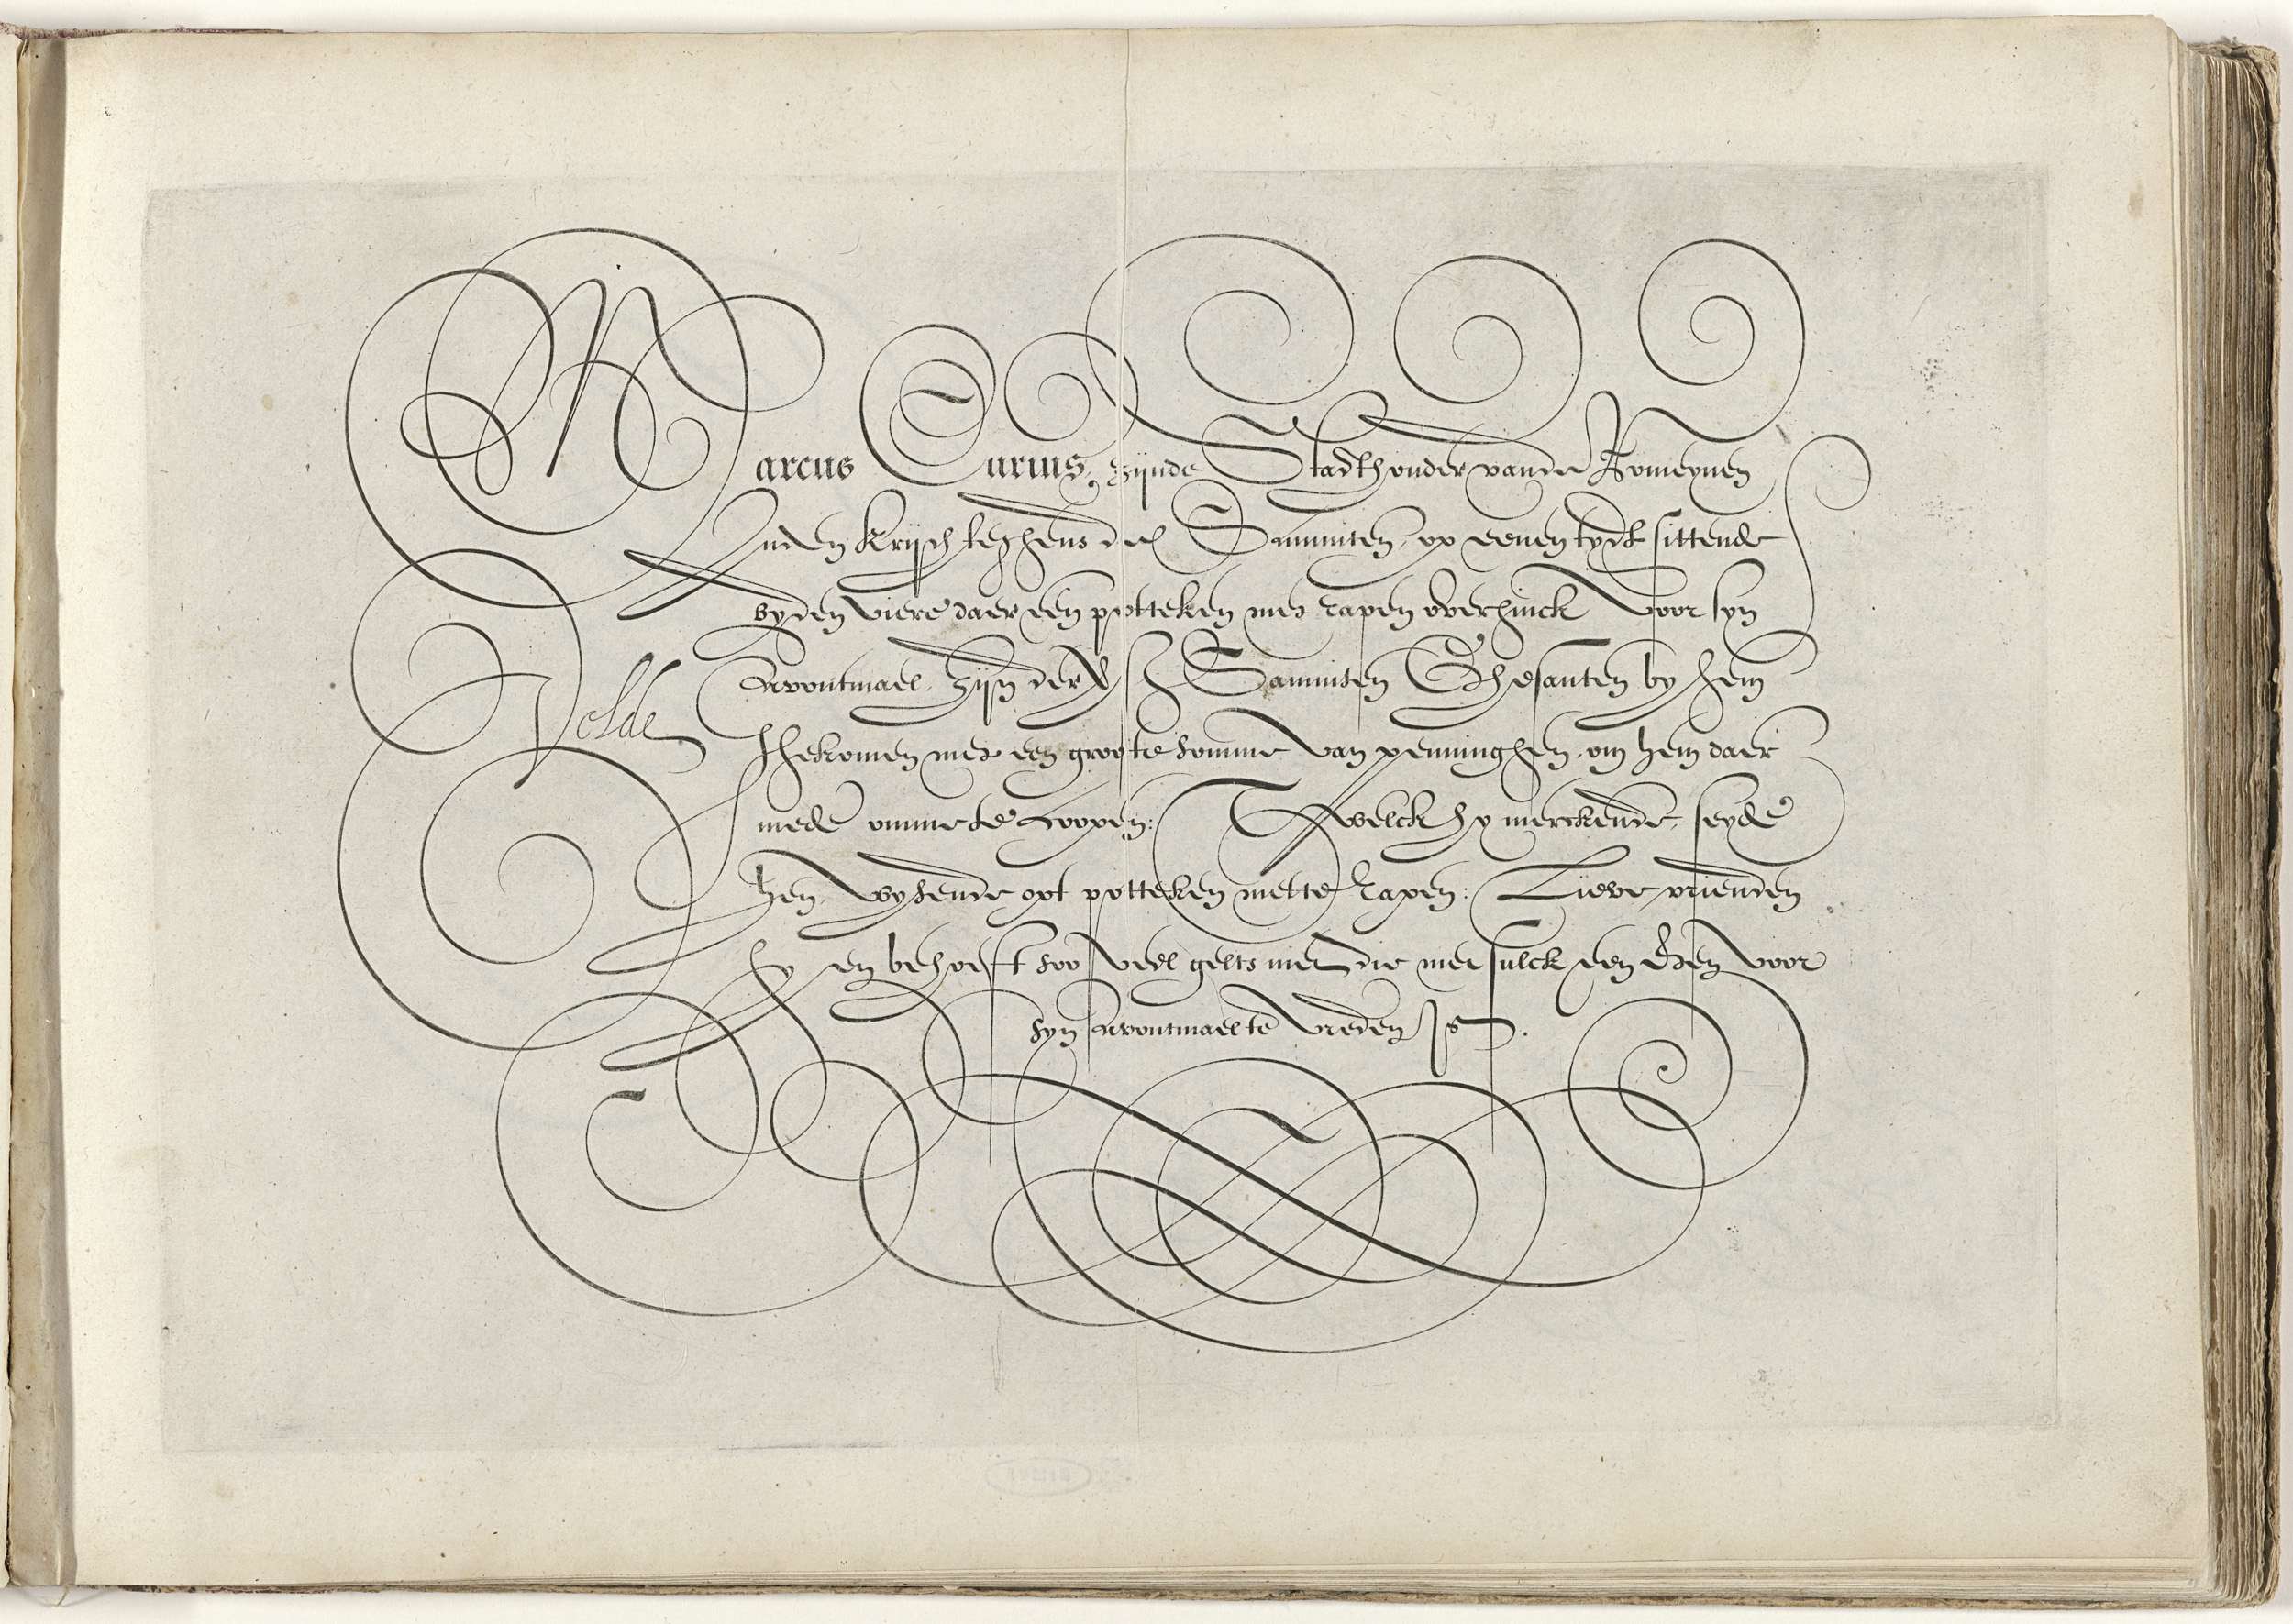 Marcus Curius, zijnde Stadthouder vande Romeynen
Inden Krijch teghens der Samniten, op eenen tydt sittende
by den viere daer een potteken met rapen overhinck Voor syn
Avontmael, Zijn der Samniten Ghesanten by hem
Velde
ghekomen met een groote somme Van penninghen, om hem daer
mede omme te coopen: Twelck hy merckende, seyde
hen, wysende opt potteken mette rapen: Lieve vrienden
Hy en behoeft soo Veel gelts niet die met sulck een eten Voor
syn avontmael te Vreden Is.